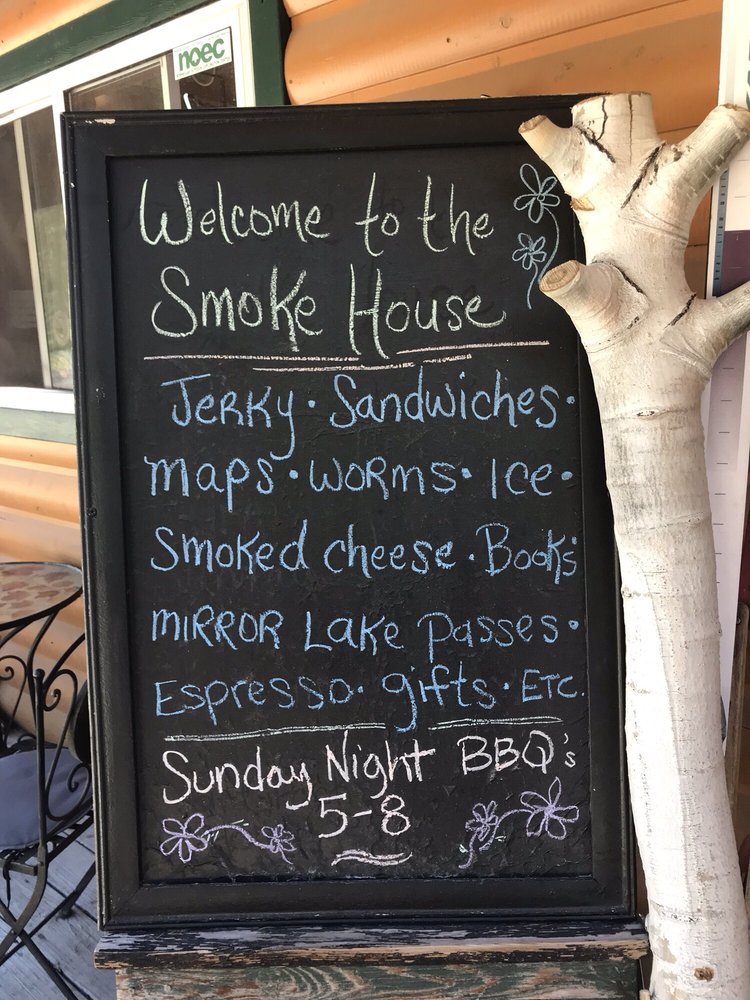 noec
Welcome to the
Smoke House
Jerky · Sandwiches ·
maps · worms · Ice ·
Smoked cheese · Books
mirror Lake passes ·
Espresso · gifts · Etc.
Sunday Night BBQ's
5-8